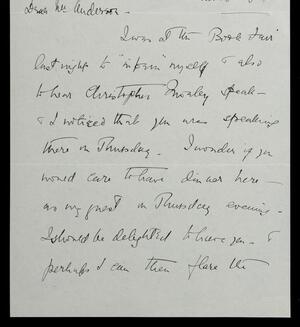 Dear Mr Anderson -
I was at the Book Fair
last night to "inform" myself & also
to hear Christopher Morley speak -
& I noticed that you were speaking
there on Thursday. I wonder if you
would care to have dinner here -
as my guest on Thursday evening -
I should be delighted to have you - &
perhaps I can then the